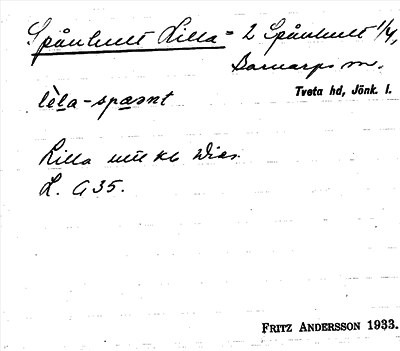 Spånhult Lilla = 2 Spånhult 1/4,
Barnarps sn.
Tveta hd, Jönk. l.
lèla-spæònt
Lilla utt kb
L. G 35.
FRITZ ANDERSSON 1933.